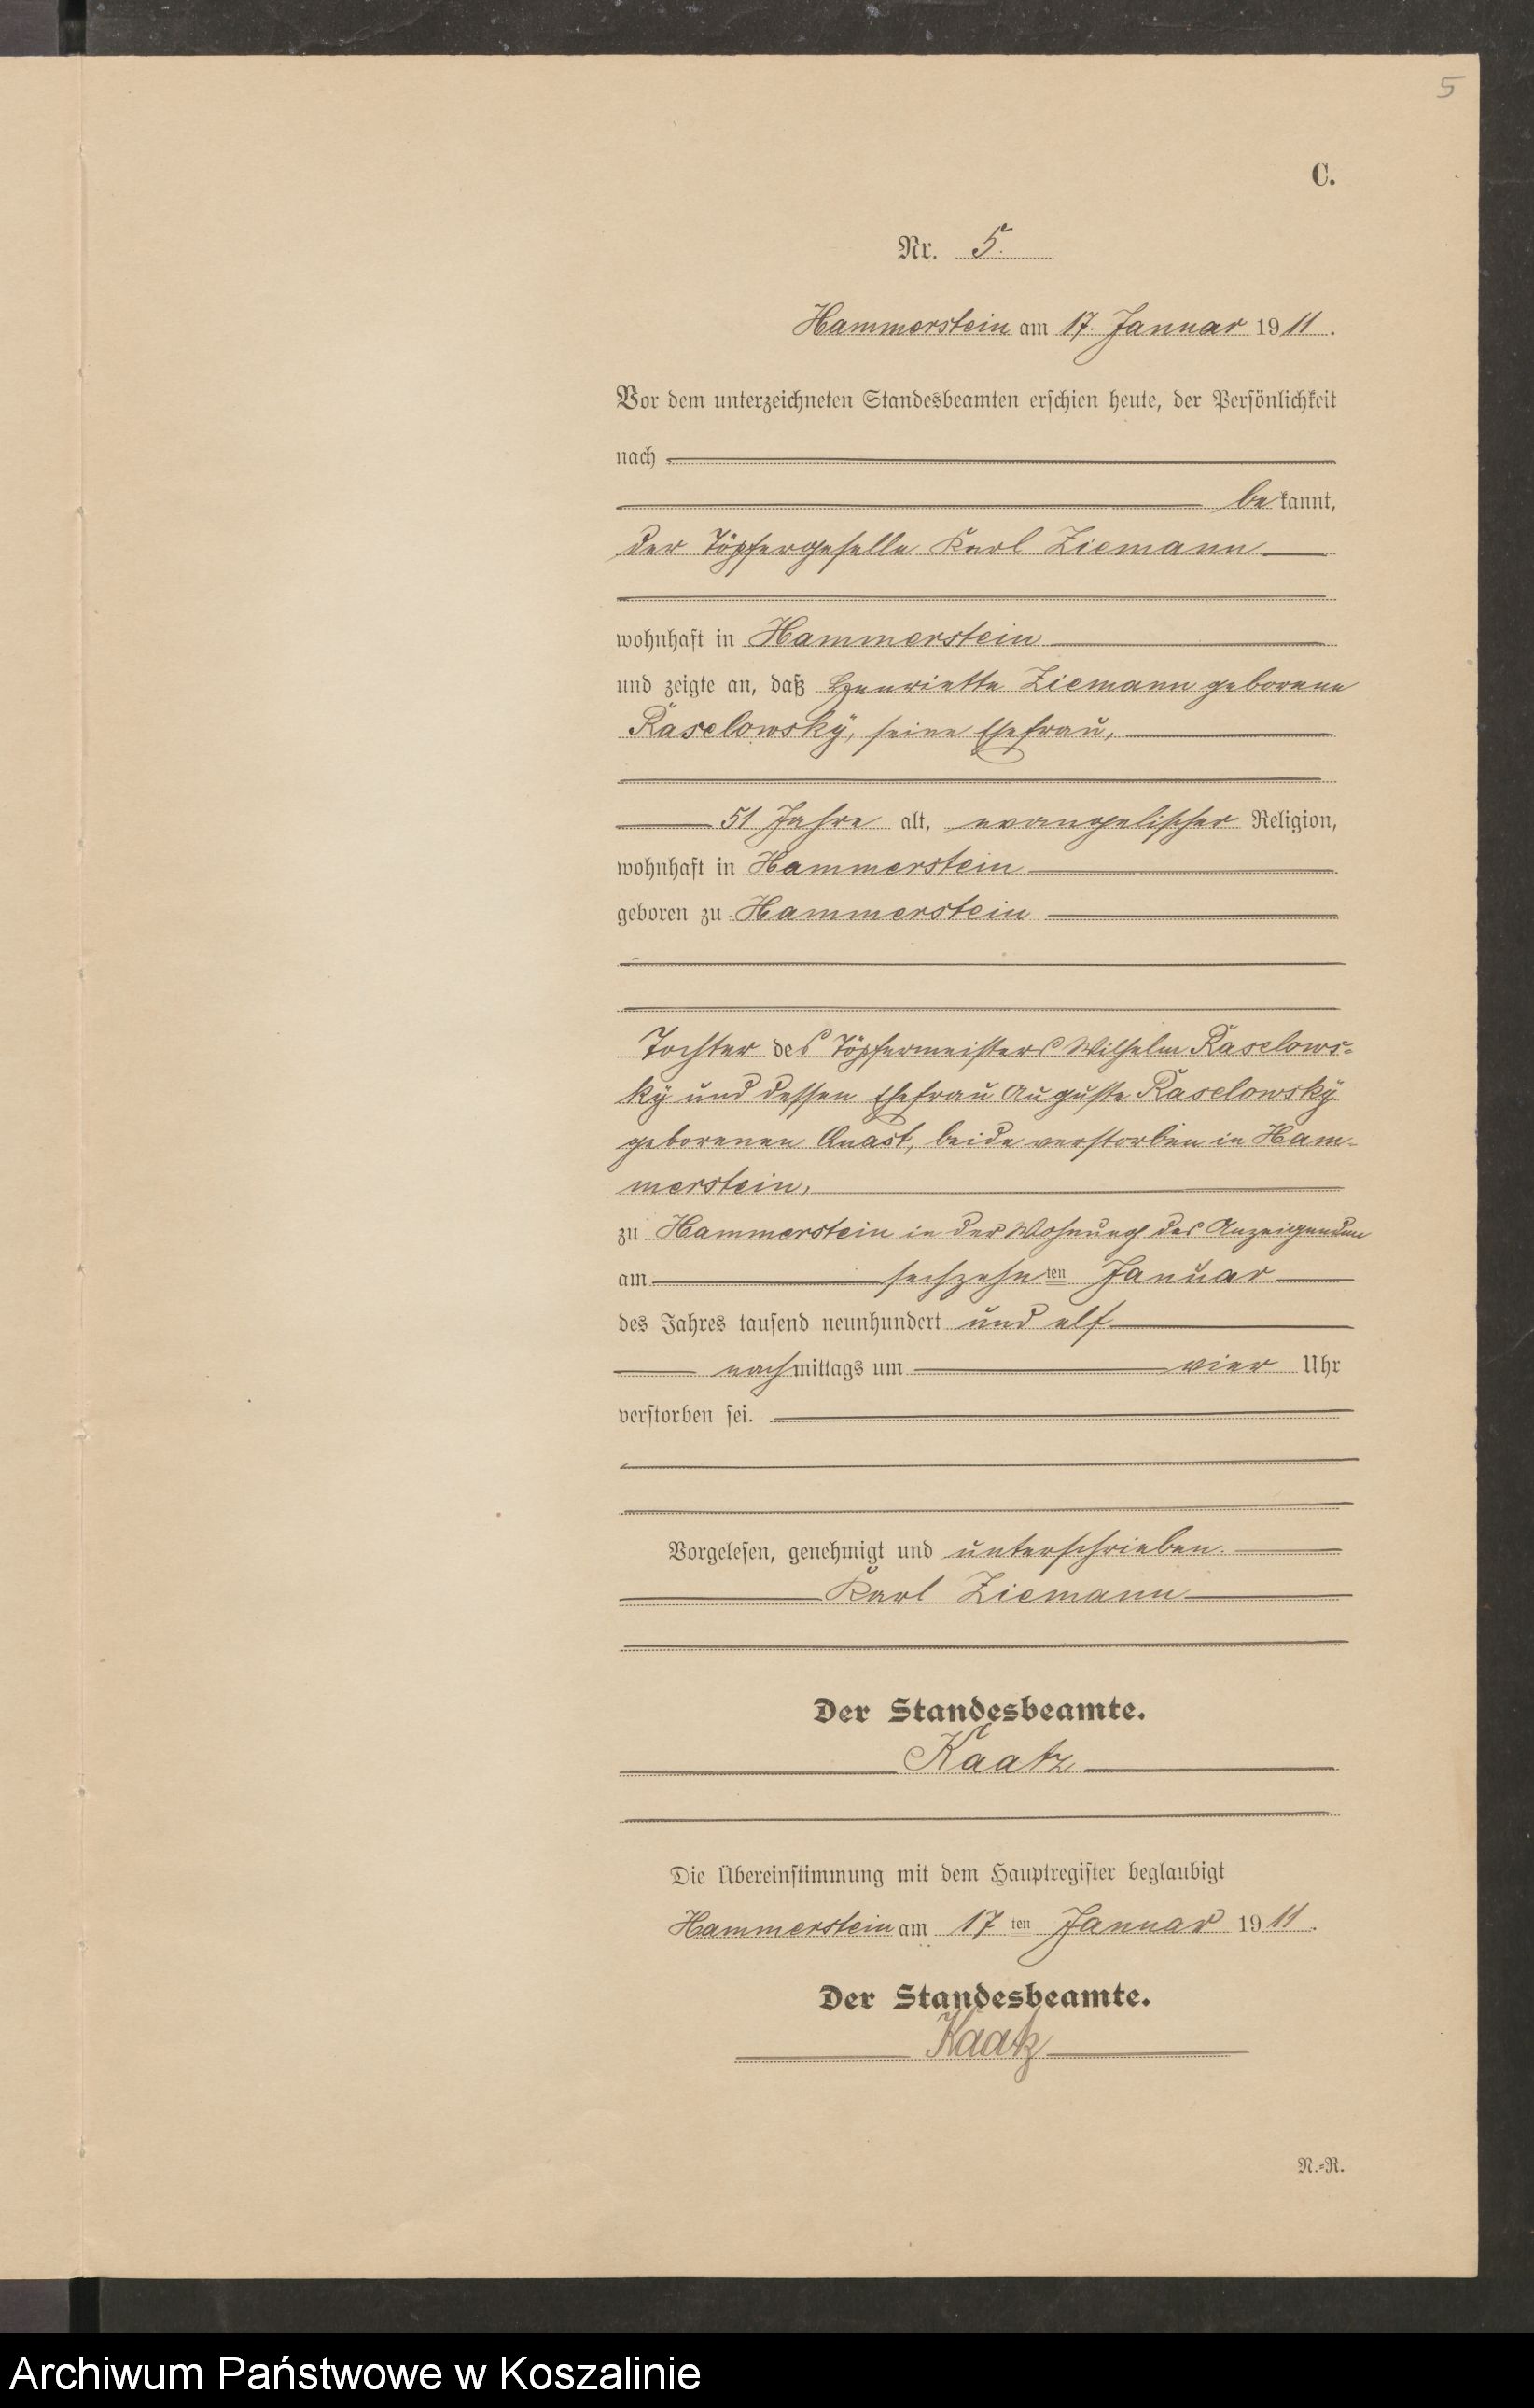 5
C.
Nr. 5.
Hammerstein am 17. Januar 1911.
Vor dem unterzeichneten Standesbeamten erschien heute, der Persönlichkeit
nach
bekannt,
der Töpfergeselle Karl Ziemann
wohnhaft in Hammerstein
und zeigte an, daß Henriette Ziemann geborene
Raselowsky, seine Ehefrau,
51 Jahre alt, evangelischer Religion,
wohnhaft in Hammerstein
geboren zu Hammerstein
Tochter des Töpfermeisters Wilhelm Raselows-
ky und dessen Ehefrau Auguste Raselowsky
geborenen Quast, beide verstorben in Ham-
merstein,
zu Hammerstein in der Wohnung des Anzeigenden
am sechzehnten Januar
des Jahres tausend neunhundert und elf
nachmittags um vier Uhr
verstorben sei.
Vorgelesen, genehmigt und unterschrieben.
Karl Ziemann
Der Standesbeamte.
Kaatz
Die Übereinstimmung mit dem Hauptregister beglaubigt
Hammerstein am 17ten Januar 1911.
Der Standesbeamte.
Kaatz
N.=R.
Archiwum Państwowe w Koszalinie